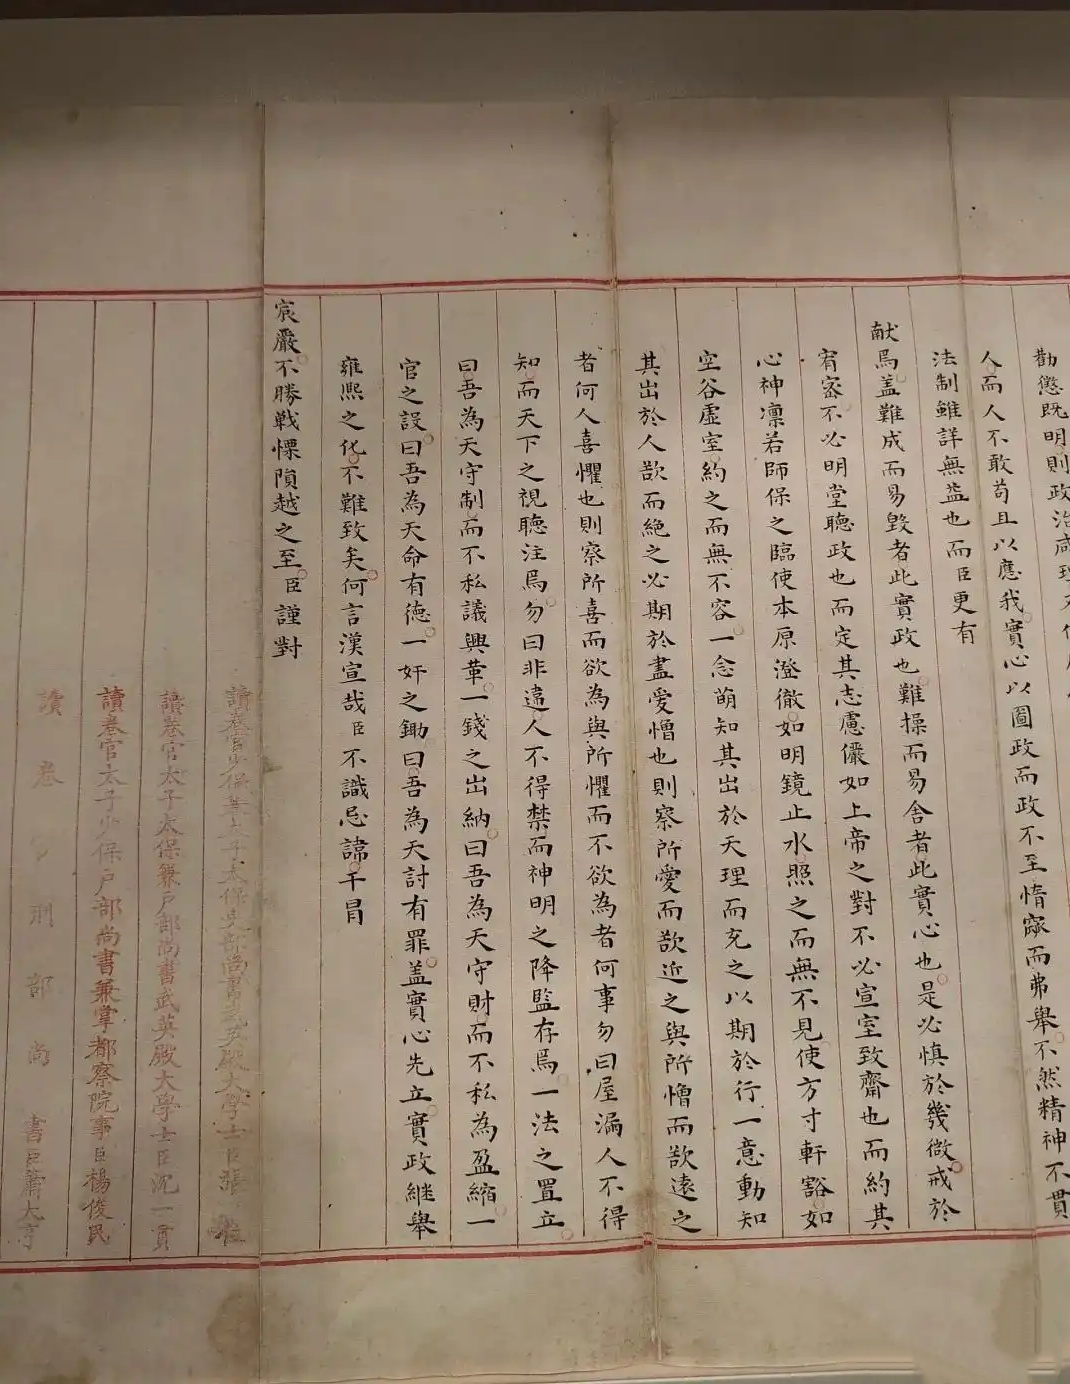 勸懲既明則政治咸理
人而人不敢苟且以應我實心以圖政而政不至惰窳而弗舉不然精神不貫
法制雖詳無益也而臣更有
献焉盖難成而易毀者此實政也難操而易舍者此實心也是必慎於幾微戒於
宥密不必明堂聽政也而定其志慮儼如上帝之對不必宣室致齋也而約其
心神凛若師保之臨使本原澄徹如明鏡止水照之而無不見使方寸軒豁如
空谷虛室約之而無不容一念萌知其出於天理而充之以期於行一意動知
其出於人欲而絶之必期於盡愛憎也則察所愛而欲近之與所憎而欲遠之
者何人喜懼也則察所喜而欲為與所懼而不欲為者何事勿曰屋漏人不得
知而天下之視聽注焉勿曰非違人不得禁而神明之降監存焉一法之置立
曰吾為天守制而不私議興革一錢之出納曰吾為天守財而不私為盈縮一
官之設曰吾為天命有德一奸之鋤曰吾為天討有罪盖實心先立實政継舉
雍熙之化不難致矣何言漢宣哉臣不識忌諱干冒
宸嚴不勝戦慄隕越之至臣謹對
讀卷官少保兼太子太保吏部尚書武英殿大學士臣張位
讀卷官太子太保兼户部尚書武英殿大學士臣沈一貫
讀卷官太子少保户部尚書兼掌都察院事臣楊俊民
讀卷官刑部尚書臣蕭大亨